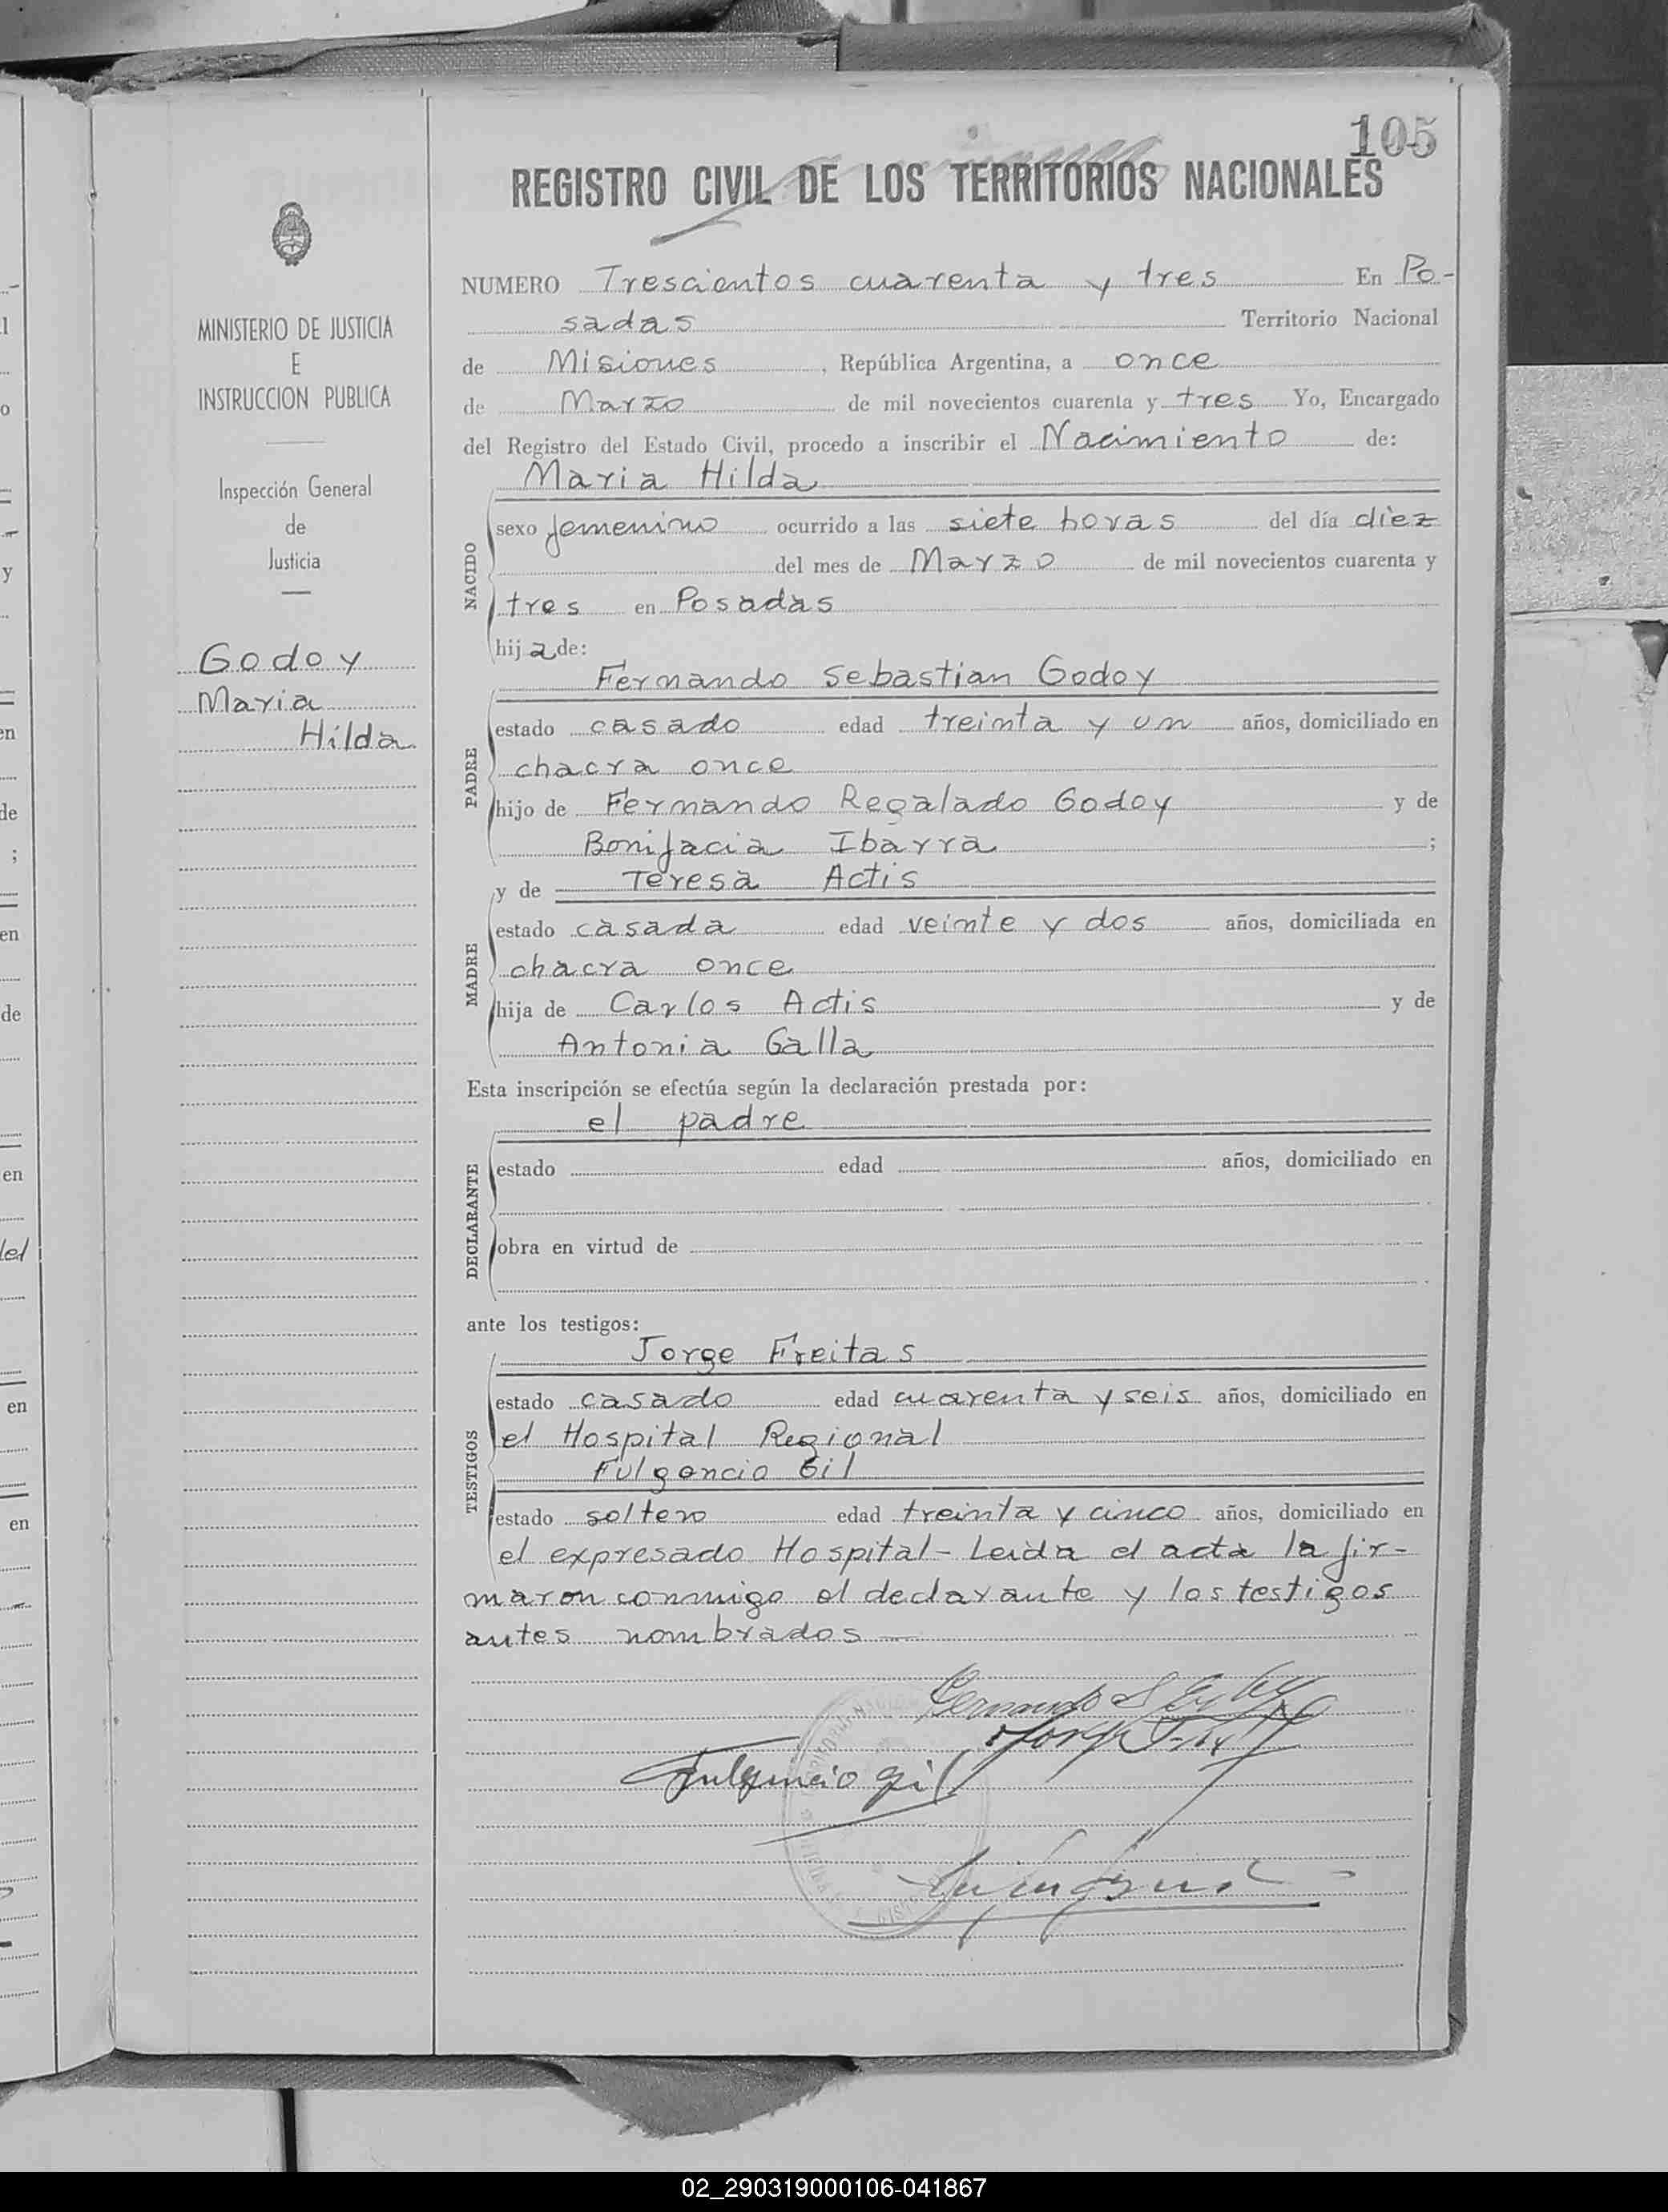 105
REGISTRO CIVIL DE LOS TERRITORIOS NACIONALES
MINISTERIO DE JUSTICIA
E
INSTRUCCION PUBLICA
Inspección General
de
Justicia
Godoy
Maria
Hilda
NUMERO Trescientos cuarenta y tres En Po-
sadas Territorio Nacional
de Misiones, República Argentina, a once
de Marzo de mil novecientos cuarenta y tres Yo, Encargado
del Registro del Estado Civil, procedo a inscribir el Nacimiento de:
Maria Hilda
NACIDO
sexo femenino ocurrido a las siete horas del día diez
del mes de Marzo de mil novecientos cuarenta y
tres en Posadas
hija de:
Fernando Sebastian Godoy
PADRE
estado casado edad treinta y un años, domiciliado en
chacra once
hijo de Fernando Regalado Godoy y de
Bonifacia Ibarra ;
y de Teresa Actis
MADRE
estado casada edad veinte y dos años, domiciliada en
chacra once
hija de Carlos Actis y de
Antonia Galla
Esta inscripción se efectúa según la declaración prestada por:
el padre
DECLARANTE
estado edad años, domiciliado en
obra en virtud de
ante los testigos:
Jorge Freitas
TESTIGOS
estado casado edad cuarenta y seis años, domiciliado en
el Hospital Regional
Fulgencio Gil
estado soltero edad treinta y cinco años, domiciliado en
el expresado Hospital - Leida el acta la fir-
maron conmigo el declarante y los testigos
antes nombrados
Fernando S
Jorge
Fulgencio Gil
02_290319000106-041867